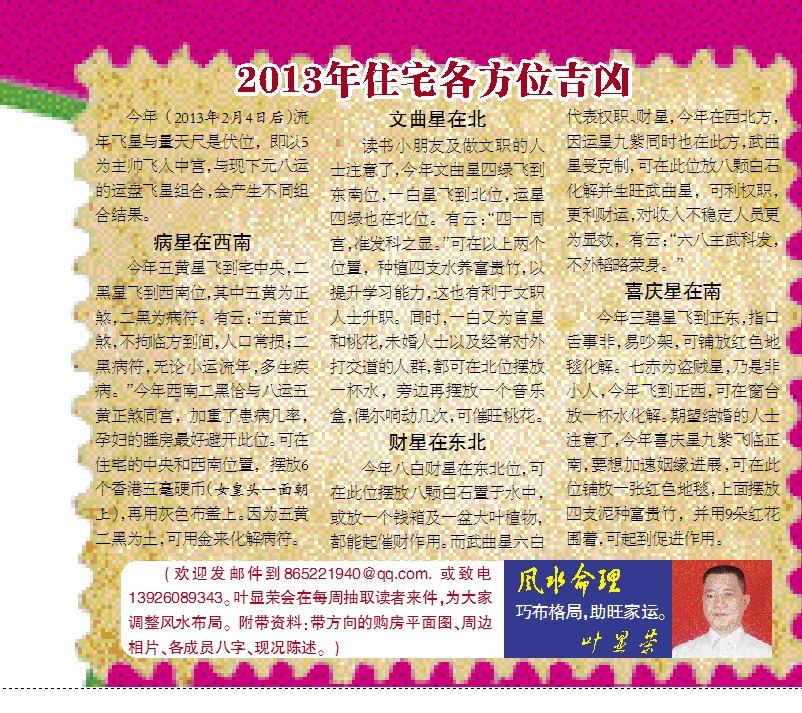 2013年住宅各方位吉凶
今年（2013年2月4日后)流
年飞星与量天尺是伏位，即以5
为主帅飞入中宫,与现下元八运
的运盘飞星组合,会产生不同组
合结果。
病星在西南
今年五黄星飞到宅中央,二
黑星飞到西南位,其中五黄为正
煞,二黑为病符。有云:“五黄正
煞,不拘临方到间,人口常损;二
黑病符,无论小运流年,多生疾
病。”今年西南二黑恰与八运五
黄正煞同宫，加重了患病几率,
孕妇的睡房最好避开此位。可在
住宅的中央和西南位置，摆放6
个香港五毫硬币(女皇头一面朝
上),再用灰色布盖上。因为五黄
二黑为土,可用金来化解病符。
文曲星在北
读书小朋友及做文职的人
士注意了,今年文曲星四绿飞到
东南位,一白星飞到北位,运星
四绿也在北位。有云:“四一同
宫,准发科之显。”可在以上两个
位置，种植四支水养富贵竹,以
提升学习能力,这也有利于文职
人士升职。同时,一白又为官星
和桃花,未婚人士以及经常对外
打交道的人群,都可在北位摆放
一杯水，旁边再摆放一个音乐
盒,偶尔响动几次,可催旺桃花。
财星在东北
今年八白财星在东北位,可
在此位摆放八颗白石置于水中,
或放一个钱箱及一盆大叶植物,
都能起催财作用。而武曲星六白
代表权职、财星,今年在西北方,
因运星九紫同时也在此方,武曲
星受克制,可在此位放八颗白石
化解并生旺武曲星，可利权职,
更利财运,对收入不稳定人员更
为显效，有云:“六八主武科发,
不外韬略荣身。”
喜庆星在南
今年三碧星飞到正东,指口
舌事非,易吵架,可铺放红色地
毯化解。七赤为盗贼星,乃是非
小人,今年飞到正西,可在窗台
放一杯水化解。期望结婚的人士
注意了,今年喜庆星九紫飞临正
南,要想加速姻缘进展,可在此
位铺放一张红色地毯,上面摆放
四支泥种富贵竹，并用9朵红花
围着,可起到促进作用。
(欢迎发邮件到865221940@qq.com. 或致电
13926089343。叶显荣会在每周抽取读者来件,为大家
调整风水布局。附带资料:带方向的购房平面图、周边
相片、各成员八字、现况陈述。)
风水命理
巧布格局,助旺家运。
叶显荣